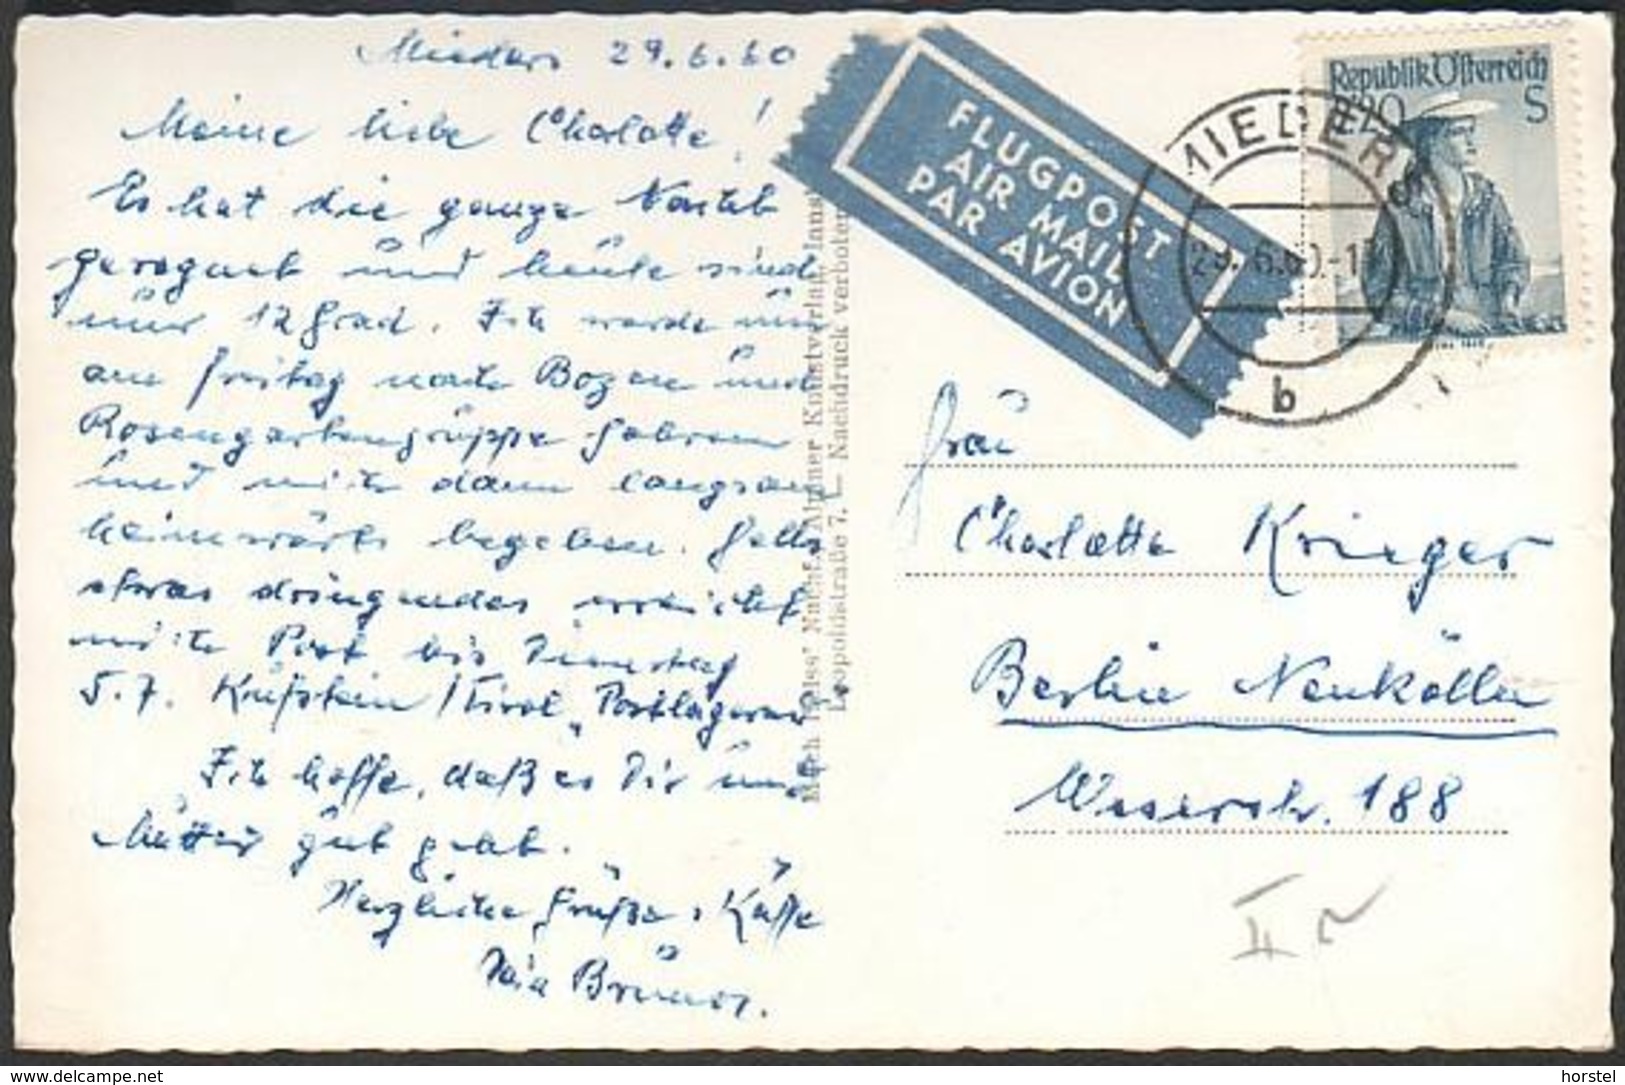 Mieders 29.6.60
Meine liebe Charlotte!
Es hat die ganze Nacht
geregnet und heute sind
nur 12 Grad. Ich werde nun
am Freitag nach Bozen und
Rosengartengruppe fahren
und mich dann langsam
heimwärts begeben. Falls
etwas dringendes erreicht
mich Post bis Dienstag
5.7. Kufstein/Tirol „Postlagernd
Ich hoffe, daß es Dir und
Mutter gut geht.
Herzliche Grüße, Küsse
Dein Bruder.
FLUGPOST
AIR MAIL
PAR AVION
Republik Österreich
2.20 S
MIEDERS
29.6.60.-1
b
Nachf. Alpiner Kunstverlag, Inns
Leopoldstraße 7. - Nachdruck verboten
Frau
Charlotte Krieger
Berlin Neukölln
Weserstr. 188
II
delcampe.net
horstel